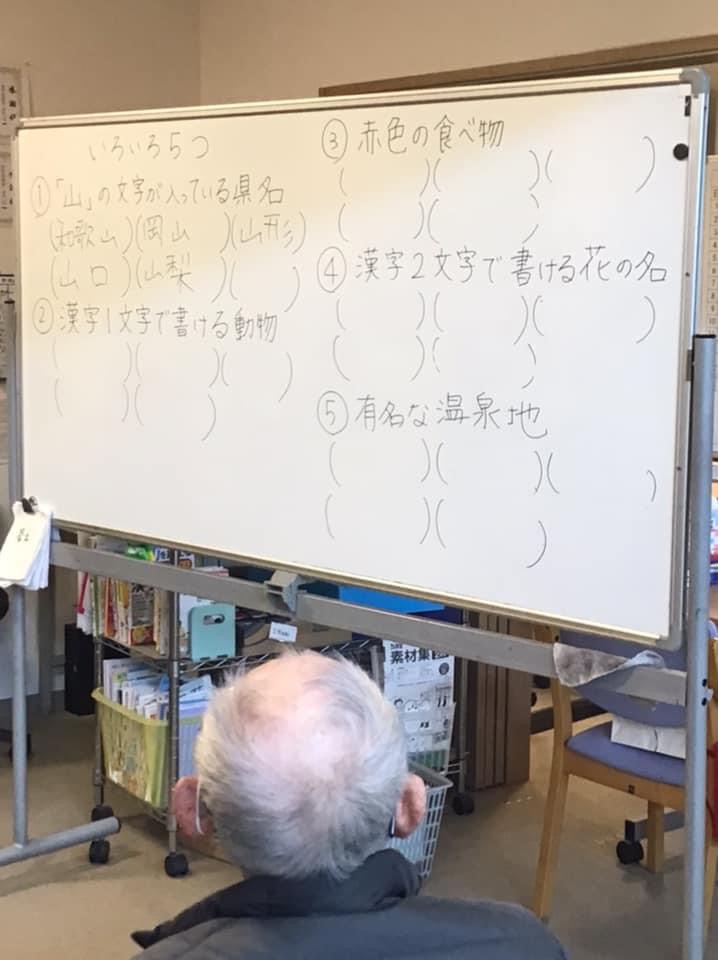 いろいろ5つ
①「山」の文字が入っている県名
(和歌山)(岡山)(山形)
(山口)(山梨)(　　)
②漢字1文字で書ける動物
(　　)(　　)(　　)
(　　)(　　)
③赤色の食べ物
(　　)(　　)(　　)
(　　)(　　)
④漢字2文字で書ける花の名
(　　)(　　)(　　)
(　　)(　　)
⑤有名な温泉地
(　　)(　　)(　　)
(　　)(　　)
素材集